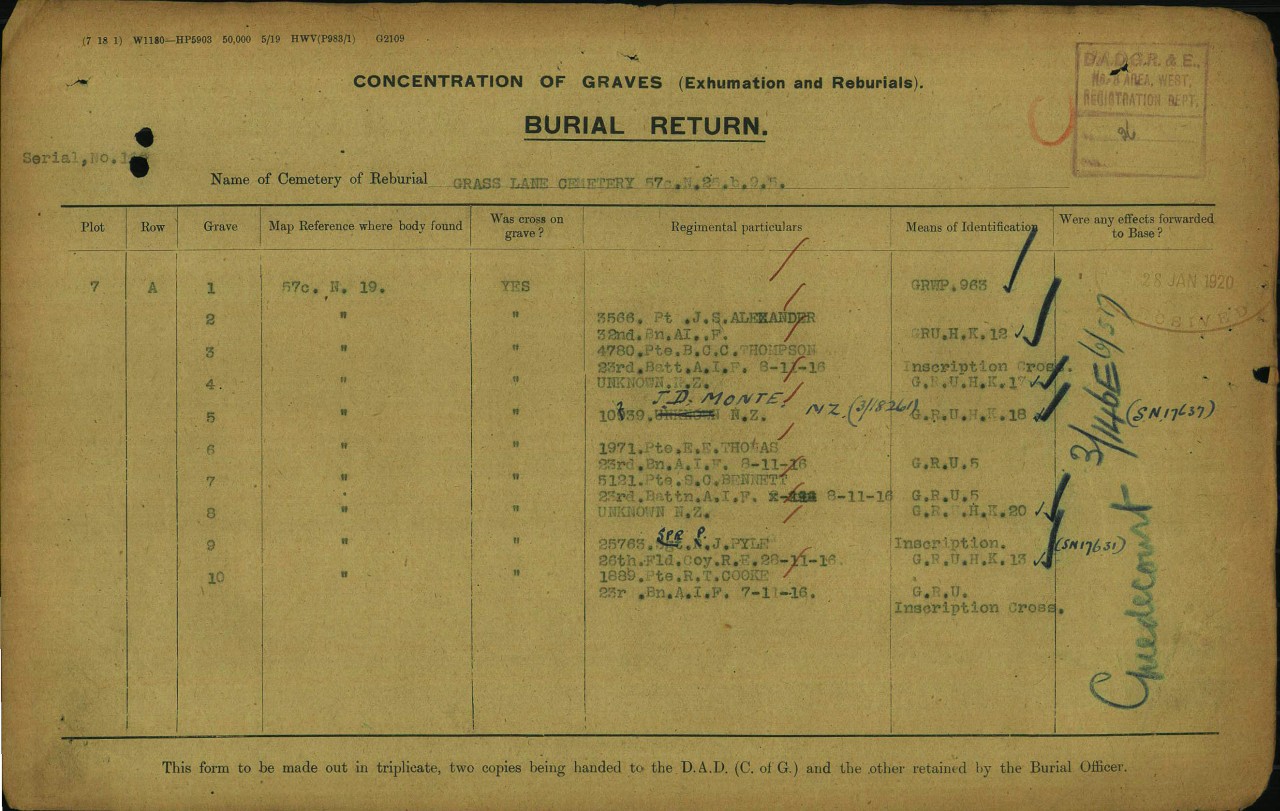 (7 18 1) W1180—HP5903 50,000 5/19 HWV(P983/1) G2109
D.A.D.G.R. & E.,
AREA, WEST,
REGISTRATION DEPT.
CONCENTRATION OF GRAVES (Exhumation and Reburials).
BURIAL RETURN.
Serial,No.
Name of Cemetery of Reburial GRASS LANE CEMETERY 57c.N.25.b.9.5.
Plot Row Grave Map Reference where body found Was cross on grave? Regimental particulars Means of Identification Were any effects forwarded to Base?
28 JAN 1920
7 A 1 57c. N. 19. YES GRWP.963
2 " " 3566. Pt .J.S.ALEXANDER
32nd.Bn.AI..F. GRU.H.K.12
3 " " 4780.Pte.B.C.C.THOMPSON
23rd.Batt.A.I.F. 8-11-16 Inscription Cross.
4 " " UNKNOWN.N.Z. G.R.U.H.K.17
J.D. MONTE.
5 " " N.Z. NZ.(3/18261) G.R.U.H.K.18 (SN17637)
6 " " 1971.Pte.E.E.THOMAS
23rd.Bn.A.I.F. 8-11-16 G.R.U.5
7 " " 5121.Pte.S.C.BENNETT
23rd.Battn.A.I.F. 8-11-16 G.R.U.5
8 " " UNKNOWN N.Z. G.R.U.H.K.20
SPR P.
9 " " 25763. J.PYLE Inscription. (SN17631)
26th.Fld.Coy.R.E.28-11-16. G.R.U.H.K.13
10 " " 1889.Pte.R.T.COOKE
23r .Bn.A.I.F. 7-11-16. G.R.U.
Inscription Cross.
Gueudecourt 3/146E
This form to be made out in triplicate, two copies being handed to the D.A.D. (C. of G.) and the other retained by the Burial Officer.